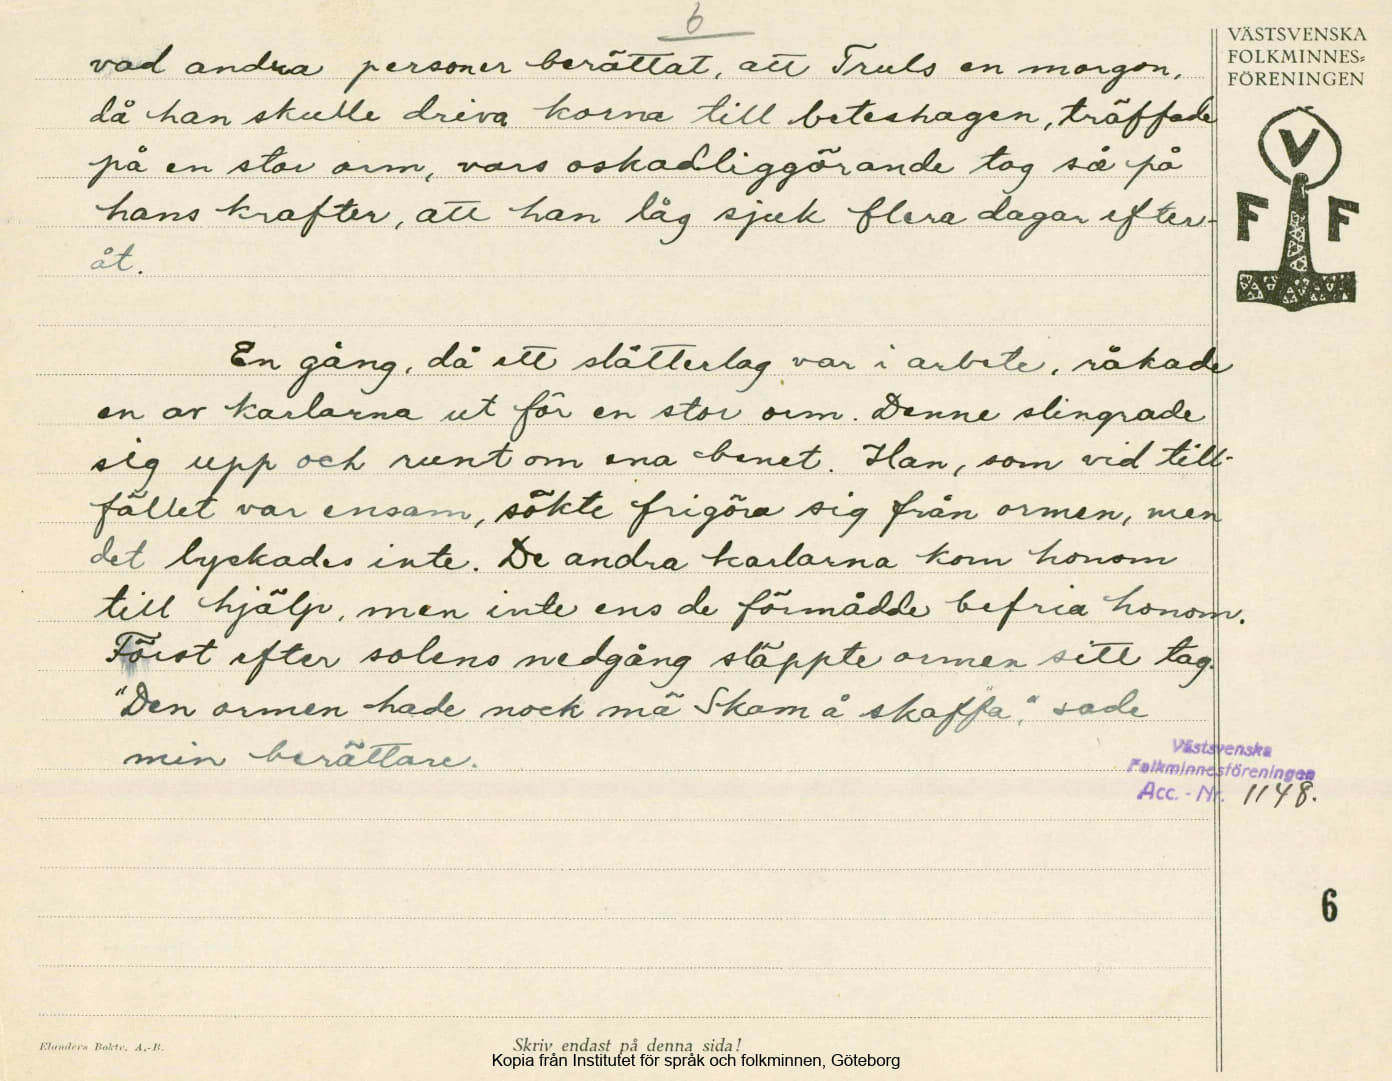 6
VÄSTSVENSKA
FOLKMINNES=
FÖRENINGEN
V
F F
vad andra personer berättat, att Truls en morgon,
då han skulle driva korna till beteshagen, träffade
på en stor orm, vars oskadliggörande tog så på
hans krafter, att han låg sjuk flera dagar efter-
åt.
En gång, då ett slåtterlag var i arbete, råkade
en av karlarna ut för en stor orm. Denne slingrade
sig upp och runt om ena benet. Han, som vid till-
fället var ensam, sökte frigöra sig från ormen, men
det lyckades inte. De andra karlarna kom honom
till hjälp, men inte ens de förmådde befria honom.
Först efter solens nedgång släppte ormen sitt tag.
"Den ormen hade nock mä Skam å skaffa", sade
min berättare.
Västsvenska
Folkminnesföreningen
Acc. - Nr. 1148.
6
Elanders Boktr. A.-B.
Skriv endast på denna sida!
Kopia från Institutet för språk och folkminnen, Göteborg